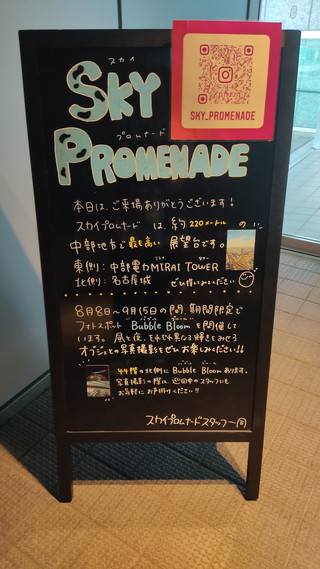 スカイ
SKY
プロムナード
PROMENADE
SKY_PROMENADE
本日は、ご来場ありがとうございます!
スカイプロムナード は、約 220メートル の
中部地方で 最も高い 展望台です。
東側:中部電力MIRAI TOWER
ミライ タワー
北側:名古屋城 ぜひ覗いてみください
8月8日~9月15日の間、期間限定で
フォトスポット "Bubble Bloom" を開催して
います。昼と夜、それぞれ異なる輝きをみせる
オブジェとの写真撮影をぜひお楽しみください!!
44階の北側に Bubble Bloom あります。
写真撮影の際は、巡回中のスタッフにも
お気軽にお声掛けください!!
スカイプロムナードスタッフ一同